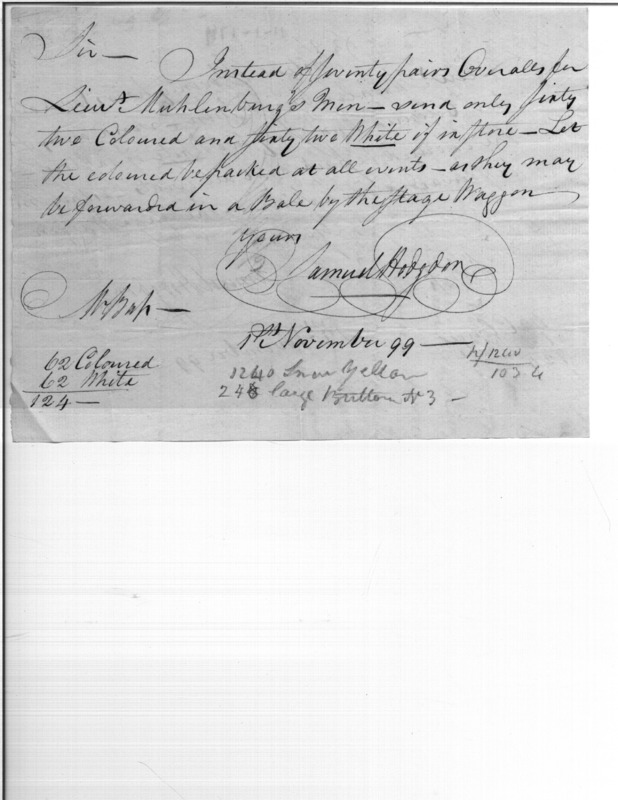 Sir — Instead of seventy pairs Overalls for
Lieut. Muhlenburg's Men — send only sixty
two Coloured and sixty two White if in store — Let
the coloured be packed at all events — as they may
be forwarded in a Bale by the Stage Waggon
Yours
Samuel Hodgdon
Mr
1st November 99 —
62 Coloured
62 White
124 —
1240 Small Yellow
248 large Buttons N 3 —